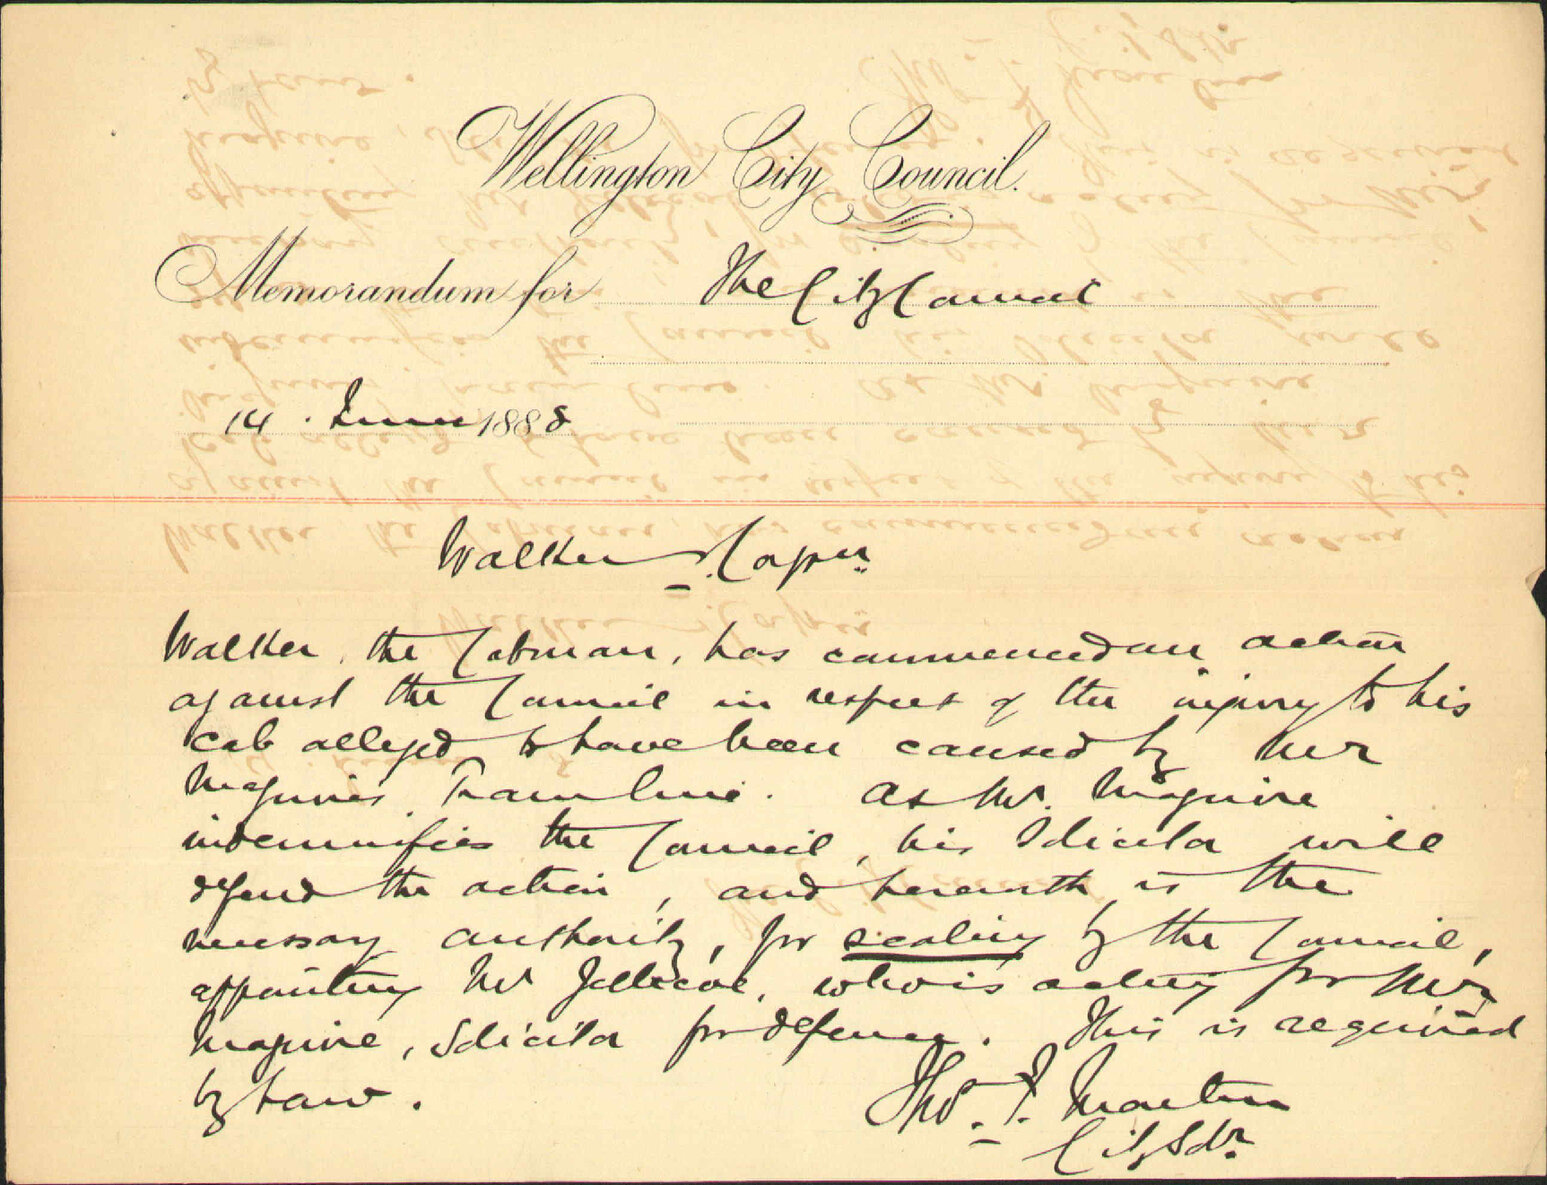 Wellington City Council.
Memorandum for The City Council
14 . June 1888
Walker v.
Walker, the Cabman, has commenced an action
against the Council in respect of the injury to his
cab alleged to have been caused by Mr
Maguires Tramline. As Mr. Maguire
indemnifies the Council, his Solicitor will
defend the action, and herewith is the
necessary authority, for sealing by the Council,
appointing Mr Jellicoe, who is acting for Mr
Maguire, Solicitor for defence. This is required
by Law.
Tho.s F. Martin
City Solr.